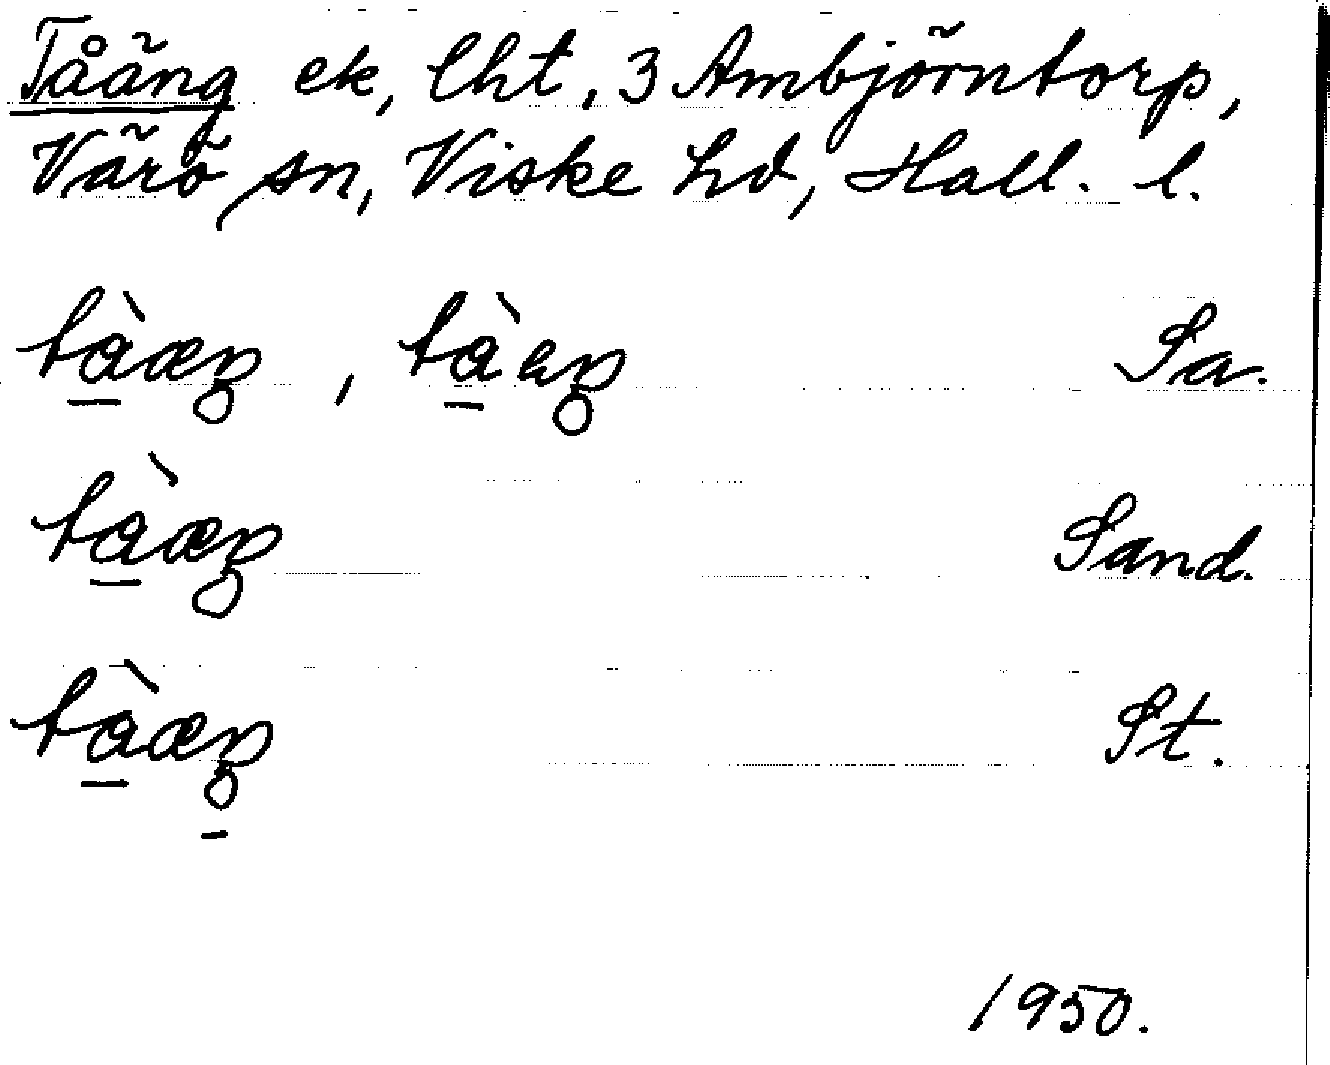 Tåäng ek, lht, 3 Ambjörntorp,
Värö sn, Viske hd, Hall. l.
tàæŋ, tàəŋ Sa.
tàæŋ Sand.
tàæŋ St.
1950.